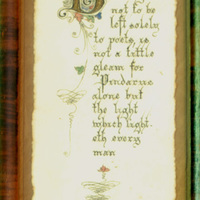 not to be
left solely
to poets, is
not a little
gleam for
Pindarus
alone but
the light
which light
eth every
man